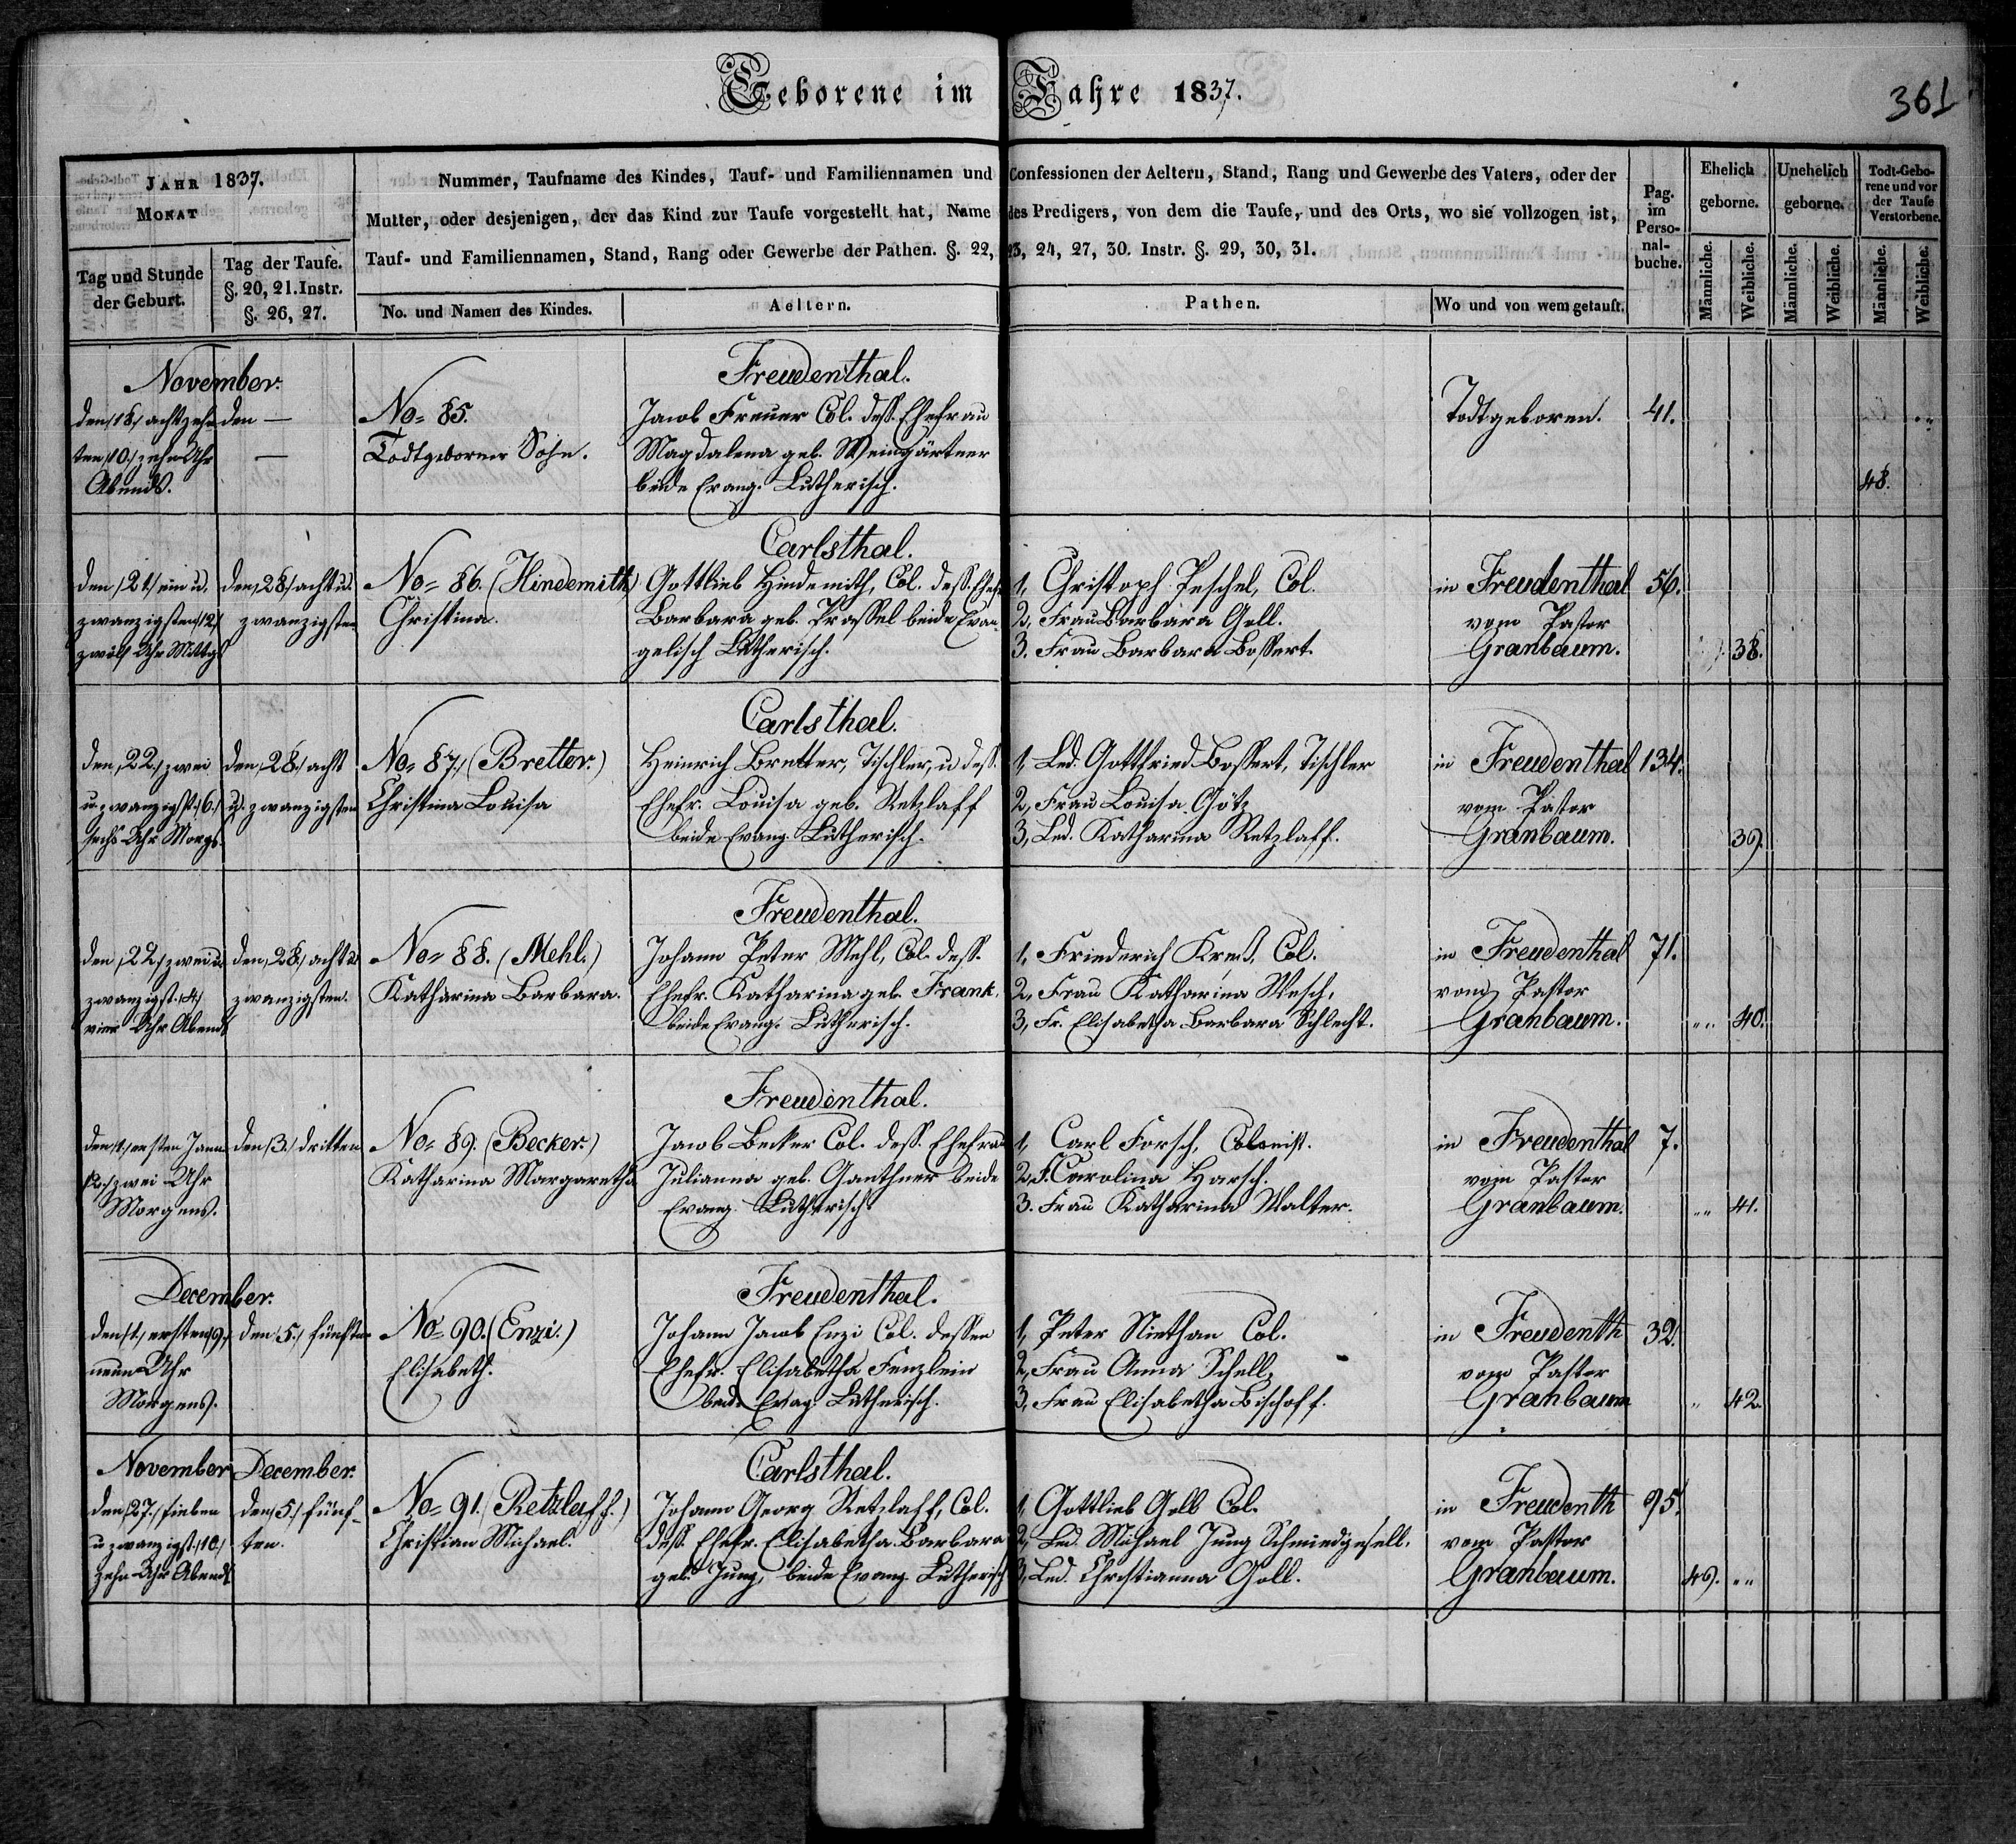 Geborene im Jahre 1837.
361
JAHR 1837.
MONAT
Tag und Stunde der Geburt.
Tag der Taufe. §. 20, 21. Instr. §. 26, 27.
Nummer, Taufname des Kindes, Tauf- und Familiennamen und Confessionen der Aeltern, Stand, Rang und Gewerbe des Vaters, oder der
Mutter, oder desjenigen, der das Kind zur Taufe vorgestellt hat, Name des Predigers, von dem die Taufe, und des Orts, wo sie vollzogen ist,
Tauf- und Familiennamen, Stand, Rang oder Gewerbe der Pathen. §. 22, 23, 24, 27, 30. Instr. §. 29, 30, 31.
No. und Namen des Kindes.
Aeltern.
Pathen.
Wo und von wem getauft.
Pag. im Personal-buche.
Ehelich geborne.
Unehelich geborne.
Todt-Geborene und vor der Taufe Verstorbene.
Männliche. Weibliche. Männliche. Weibliche. Männliche. Weibliche.
November.
den /18./ achtzehn
ten /10./ zehn Uhr
Abends.
den —
—
No= 85.
Todtgeborner Sohn.
Freudenthal.
Jacob Freuer Col. dess. Ehefrau
Magdalena geb. Weingärtner
beide Evang. Lutherisch.
Todtgeboren.
41.
48.
den /21./ ein u.
zwanzigsten /12./
zwölf Uhr Mittgs
den /28./ acht u.
zwanzigsten
No= 86. (Hindemith)
Christina.
Carlsthal.
Gottlieb Hindemith, Col. dess. Ehefr.
Barbara geb. Prassel beide Evan-
gelisch Lutherisch.
1, Christoph Peschel, Col.
2, Frau Barbara Goll.
3. Frau Barbara Bossert.
in Freudenthal
vom Pastor
Granbaum.
56.
38.
den /22./ zwei
u. zwanzigst. /6./
sechs Uhr Morgs.
den /28./ acht
u. zwanzigsten
No= 87./ (Bretter.)
Christina Louisa
Carlsthal.
Heinrich Bretter, Tischler, u dess.
Ehefr. Louisa geb. Retzlaff
beide Evang. Lutherisch.
1, Led. Gottfried Bossert, Tischler
2, Frau Louisa Götz
3, Led. Katharina Retzlaff.
in Freudenthal
vom Pastor
Granbaum.
134.
39.
den /22./ zwei u.
zwanzigst. /4./
vier Uhr Abends
den /28./ acht u.
zwanzigsten.
No= 88. (Mehl.)
Katharina Barbara.
Freudenthal.
Johann Peter Mehl, Col. dess.
Ehefr. Katharina geb. Frank.
beide Evang. Lutherisch.
1, Friederich Col.
2, Frau Katharina Wesch,
3, Fr. Elisabetha Barbara Schlecht.
in Freudenthal
vom Pastor
Granbaum.
71.
„ „ 40.
den /1./ ersten
/2./ zwei Uhr
Morgens.
den /3./ dritten
No= 89. (Becker.)
Katharina Margaretha
Freudenthal.
Jacob Becker Col. dess. Ehefrau
Julianna geb. Ganthner beide
Evang. Lutherisch
1, Carl Forsch, Colonist.
2, F. Carolina Harsch.
3. Frau Katharina Walter.
in Freudenthal
vom Pastor
Granbaum.
7.
„ „ 41.
December.
den /1./ ersten /9./
neun Uhr
Morgens.
den /5./ fünften
No= 90. (Enzi.)
Elisabeth.
Freudenthal.
Johann Jacob Enzi Col. dessen
Ehefr. Elisabetha Fenzlein
beide Evag. Lutherisch.
1, Peter Niethan Col.
2, Frau Anna Schell,
3, Frau Elisabetha Bischoff.
in Freudenth
vom Pastor
Granbaum
32.
„ 42.
November
den /27./ sieben
u. zwanzigst. /10./
zehn Uhr Abends
December.
den /5./ fünf-
ten.
No= 91. (Retzlaff.)
Christian Michael.
Carlsthal.
Johann Georg Retzlaff, Col.
dess. Ehefr. Elisabetha Barbara
geb. Jung, beide Evang. Lutherisch
1, Gottlieb Goll Col.
2, Led. Michael Jung Schmiedgesell.
3, Led. Christianna Goll.
in Freudenth
vom Pastor
Granbaum.
95.
49. „ „